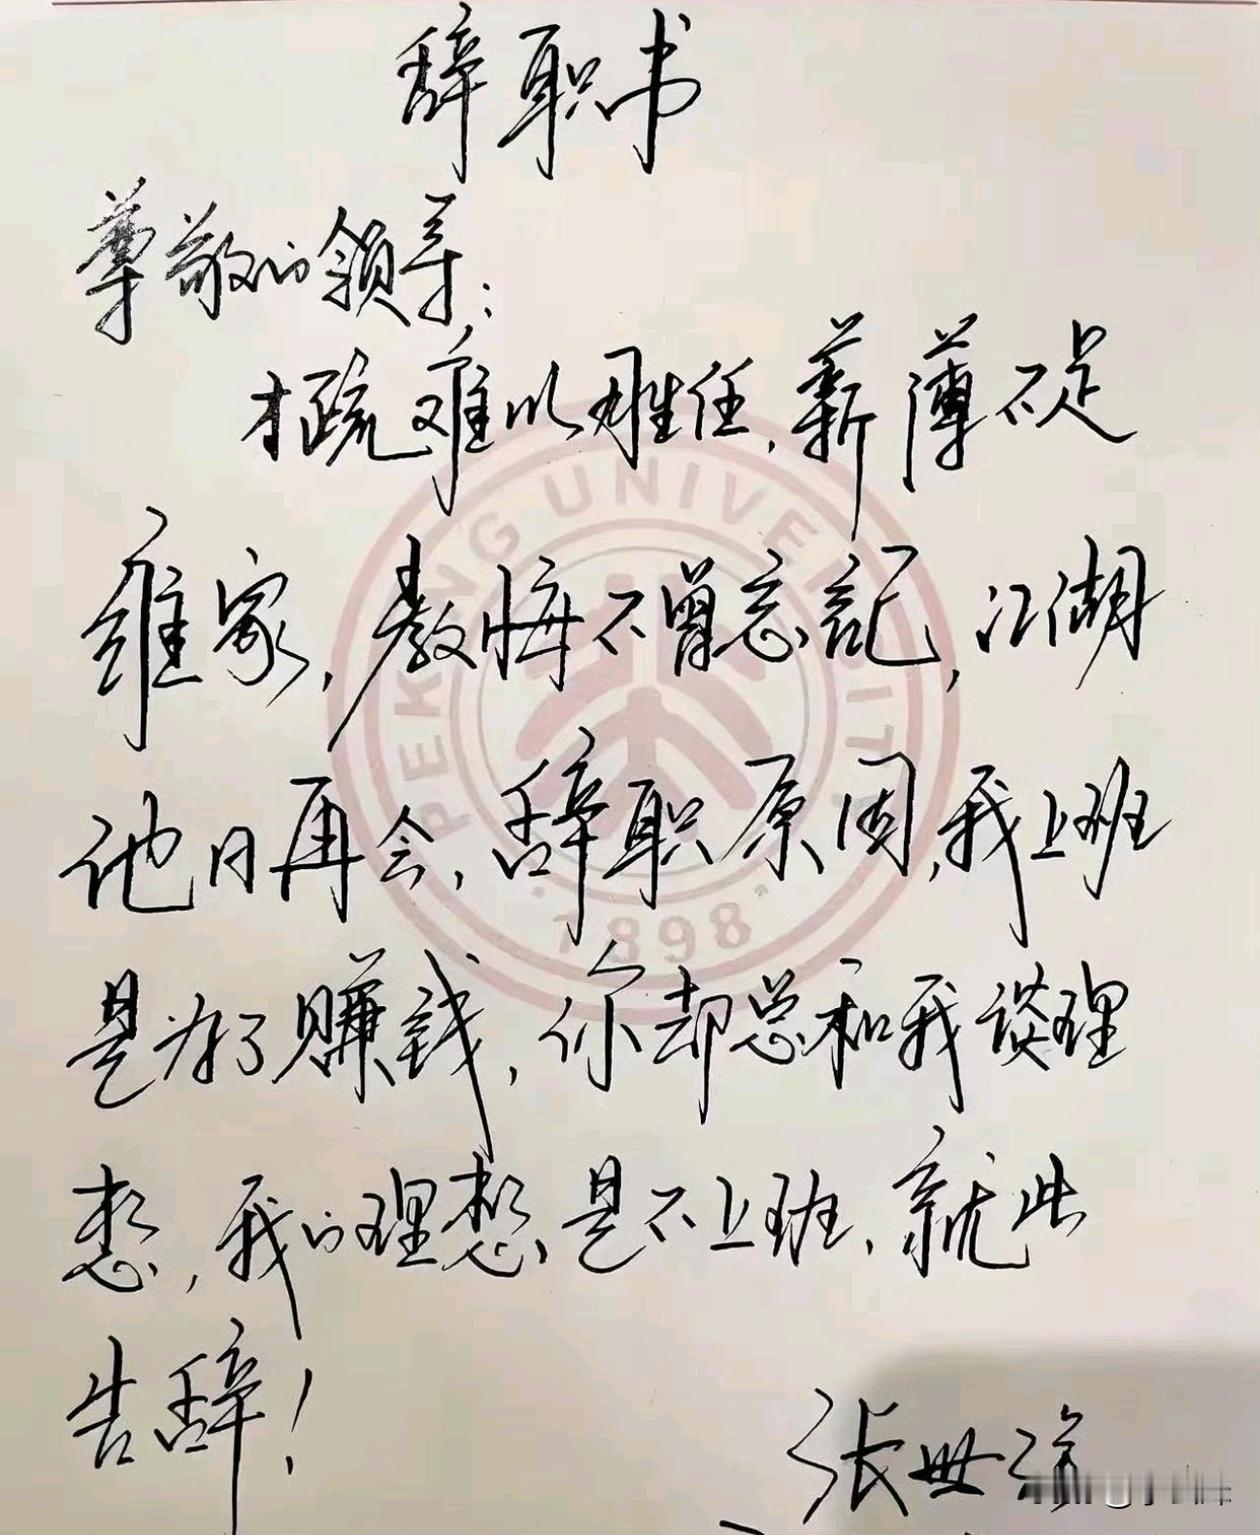 辞职书
尊敬的领导：
才疏难以胜任，薪薄不足
维家，教悔不曾忘记，江湖
他日再会，辞职原因，我上班
是为了赚钱，你却总和我谈理
想，我的理想是不上班，就此
告辞！
张世
PEKING UNIVERSITY
1898